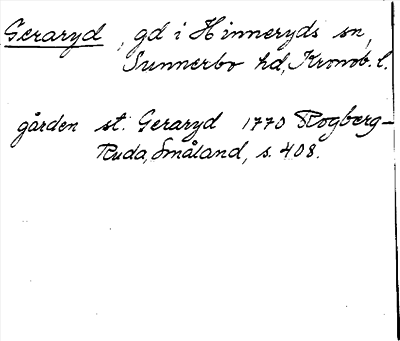 Geraryd, gd i Hinneryds sn,
Sunnerbo hd, Kronob. l.
gården st. Geraryd 1770 Rogberg-
Ruda, Småland, s. 408.